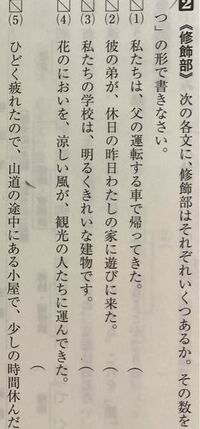 2 《修飾部》 次の各文に、修飾部はそれぞれいくつあるか。その数を
つ」の形で書きなさい。
(1) 私たちは、父の運転する車で帰ってきた。 (
(2) 彼の弟が、休日の昨日わたしの家に遊びに来た。 (
(3) 私たちの学校は、明るくきれいな建物です。 (
(4) 花のにおいを、涼しい風が、観光の人たちに運んできた。
(
(5) ひどく疲れたので、山道の途中にある小屋で、少しの時間休んだ